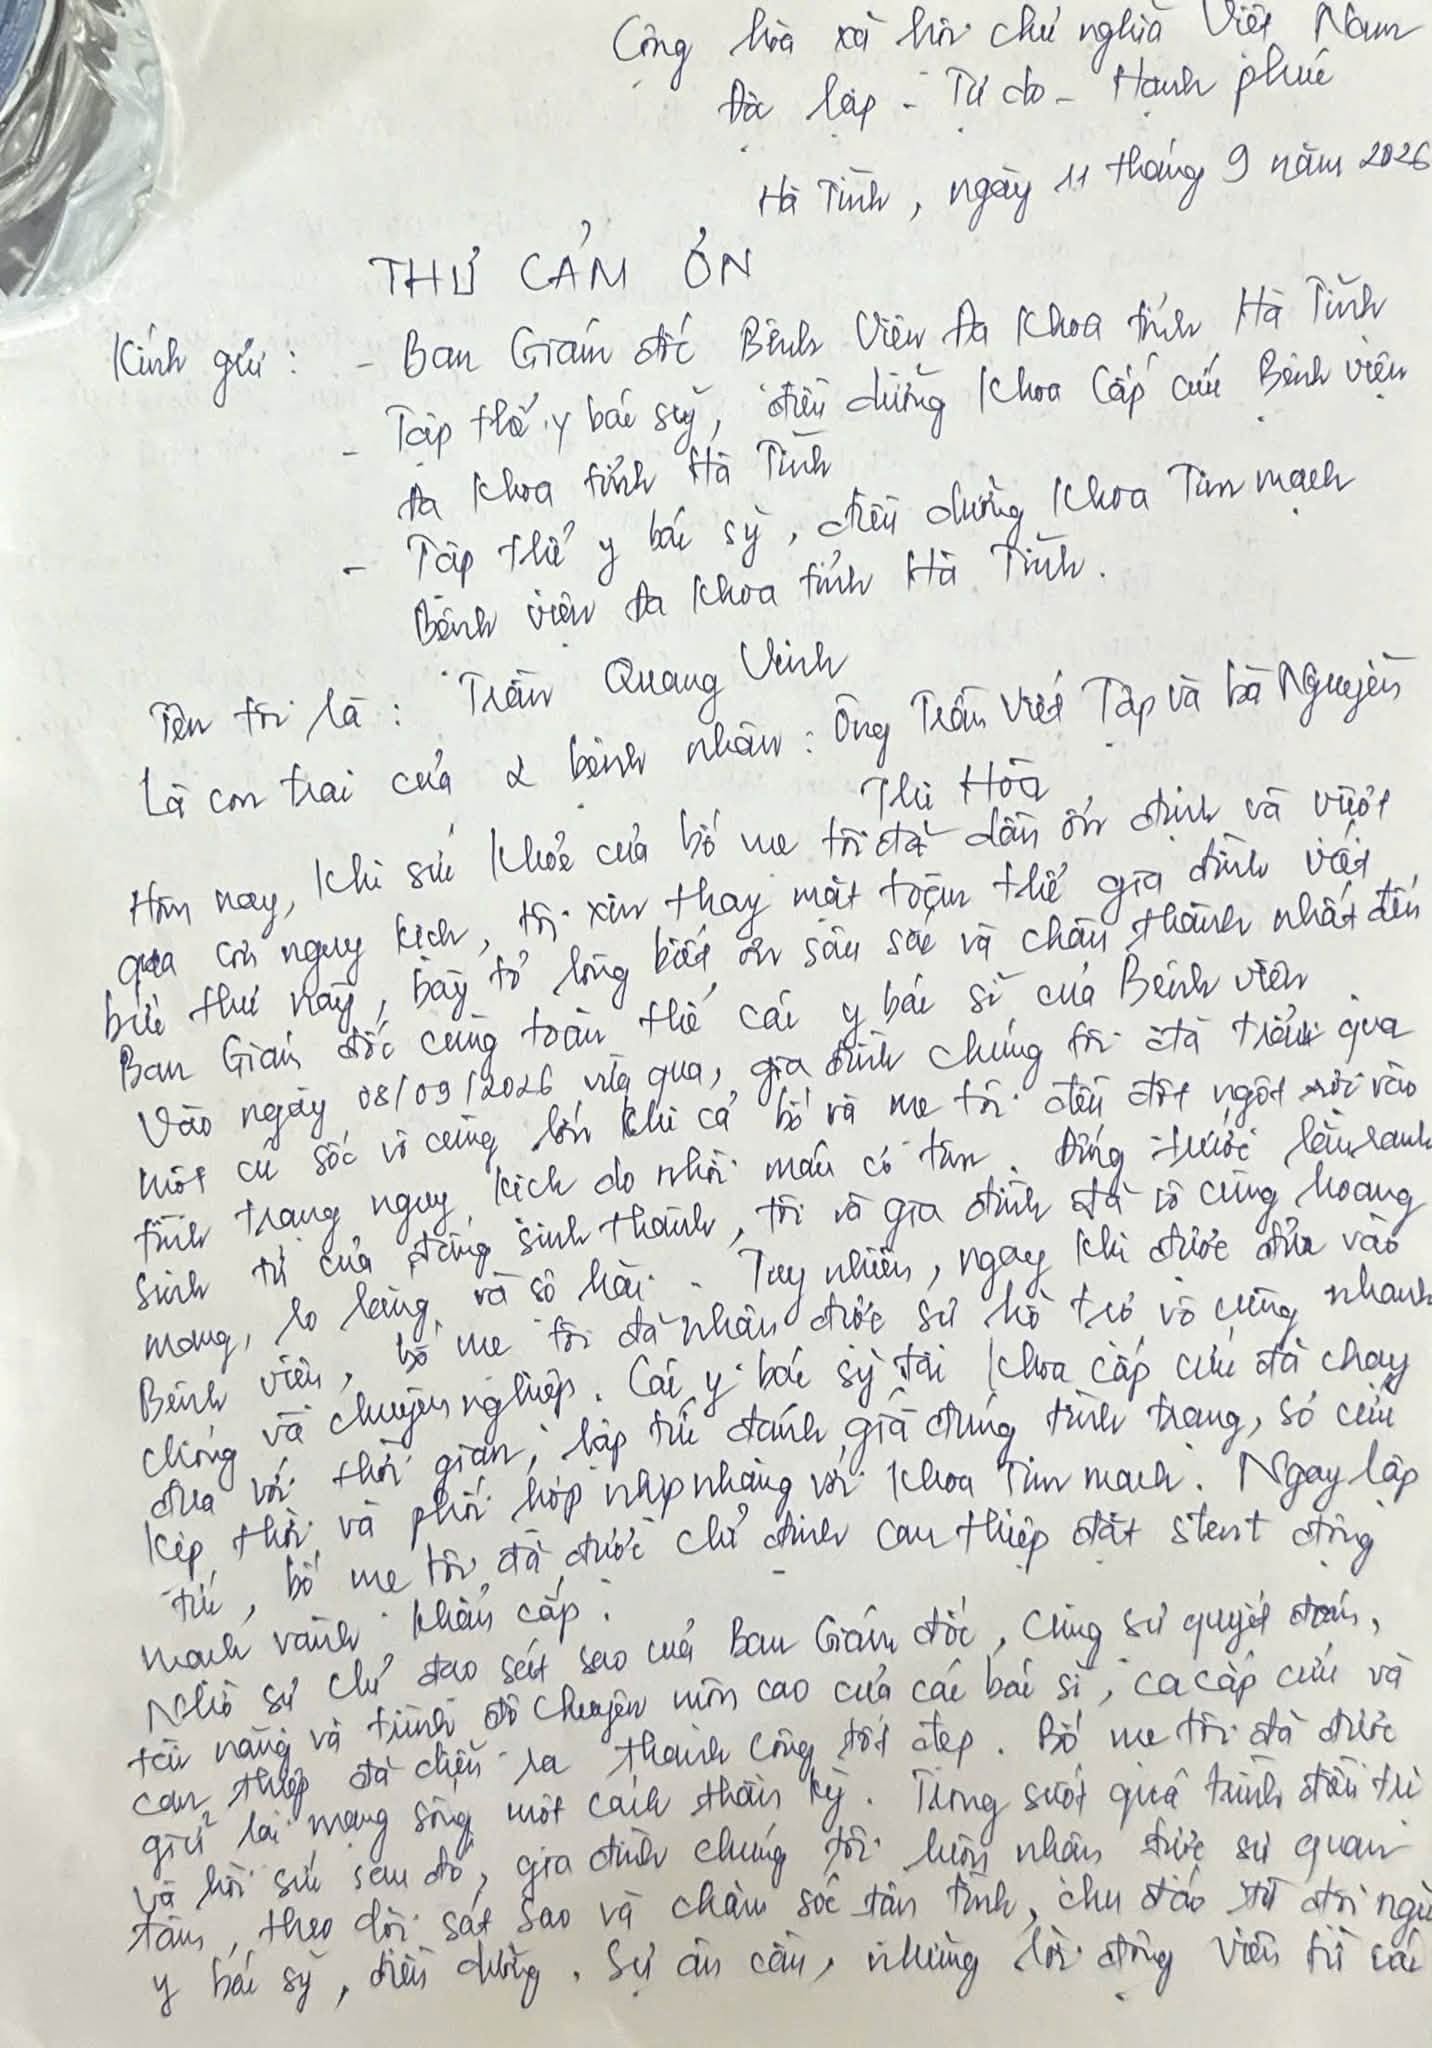 Cộng hòa xã hội chủ nghĩa Việt Nam
Độc lập - Tự do - Hạnh phúc
Hà Tĩnh, ngày 11 tháng 9 năm 2026
THƯ CẢM ƠN
Kính gửi : - Ban Giám đốc Bệnh Viện Đa Khoa tỉnh Hà Tĩnh
- Tập thể y bác sỹ, điều dưỡng Khoa Cấp cứu Bệnh viện
Đa Khoa tỉnh Hà Tĩnh
- Tập thể y bác sỹ, điều dưỡng Khoa Tim mạch
Bệnh viện Đa Khoa tỉnh Hà Tĩnh.
Tên tôi là : Trần Quang Vinh
Là con trai của 2 bệnh nhân : Ông Trần Viết Tập và bà Nguyễn
Thị Hòa
Hôm nay, khi sức khỏe của bố mẹ tôi đã dần ổn định và vượt
qua cơn nguy kịch, tôi xin thay mặt toàn thể gia đình viết
bức thư này, bày tỏ lòng biết ơn sâu sắc và chân thành nhất đến
Ban Giám đốc cùng toàn thể các y bác sĩ của Bệnh viện
Vào ngày 08/09/2026 vừa qua, gia đình chúng tôi đã trải qua
một cú sốc vô cùng lớn khi cả bố và mẹ tôi đều đột ngột rơi vào
tình trạng nguy kịch do nhồi máu cơ tim. Đứng trước lằn ranh
sinh tử của đấng sinh thành, tôi và gia đình đã vô cùng hoang
mang, lo lắng và sợ hãi. Tuy nhiên, ngay khi được đưa vào
Bệnh viện, bố mẹ tôi đã nhận được sự hỗ trợ vô cùng nhanh
chóng và chuyên nghiệp. Các y bác sỹ tại Khoa cấp cứu đã chạy
đua với thời gian, lập tức đánh giá đúng tình trạng, sơ cứu
kịp thời và phối hợp nhịp nhàng với Khoa Tim mạch. Ngay lập
tức, bố mẹ tôi đã được chỉ định can thiệp đặt stent động
mạch vành khẩn cấp.
Nhờ sự chỉ đạo sát sao của Ban Giám đốc, cùng sự quyết đoán,
tài năng và trình độ chuyên môn cao của các bác sĩ, ca cấp cứu và
can thiệp đã diễn ra thành công tốt đẹp. Bố mẹ tôi đã được
giữ lại mạng sống một cách thần kỳ. Trong suốt quá trình điều trị
và hồi sức sau đó, gia đình chúng tôi luôn nhận được sự quan
tâm, theo dõi sát sao và chăm sóc tận tình, chu đáo từ đội ngũ
y bác sỹ, điều dưỡng. Sự ân cần, những lời động viên từ các